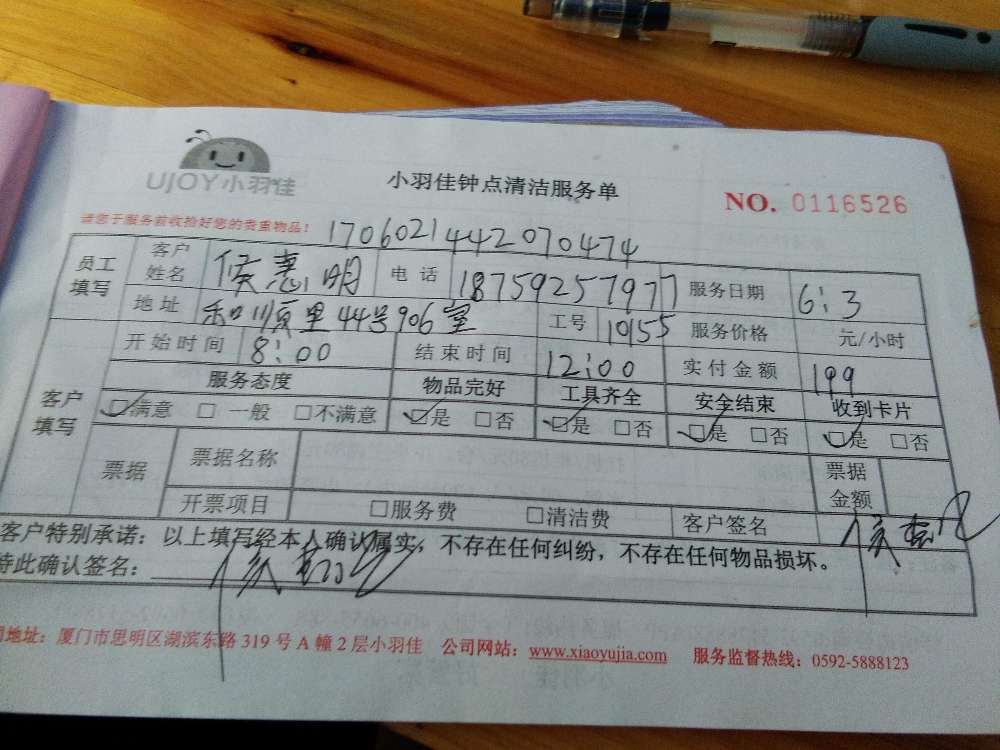 UJOY小羽佳
小羽佳钟点清洁服务单
NO. 0116526
请您于服务前收拾好您的贵重物品!
170602144207047４
员工填写 客户姓名 侯惠明 电话 18759257977 服务日期 6:3
地址 和顺里44号906室 工号 10155 服务价格 元/小时
客户填写 开始时间 8:00 结束时间 12:00 实付金额 199
服务态度 物品完好 工具齐全 安全结束 收到卡片
☑满意 □一般 □不满意 ☑是 □否 ☑是 □否 ☑是 □否 ☑是 □否
票据 票据名称 票据金额
开票项目 □服务费 □清洁费 客户签名
客户特别承诺：以上填写经本人确认属实，不存在任何纠纷，不存在任何物品损坏。
特此确认签名：
司地址：厦门市思明区湖滨东路319号A幢2层小羽佳 公司网站：www.xiaoyujia.com 服务监督热线：0592-5888123